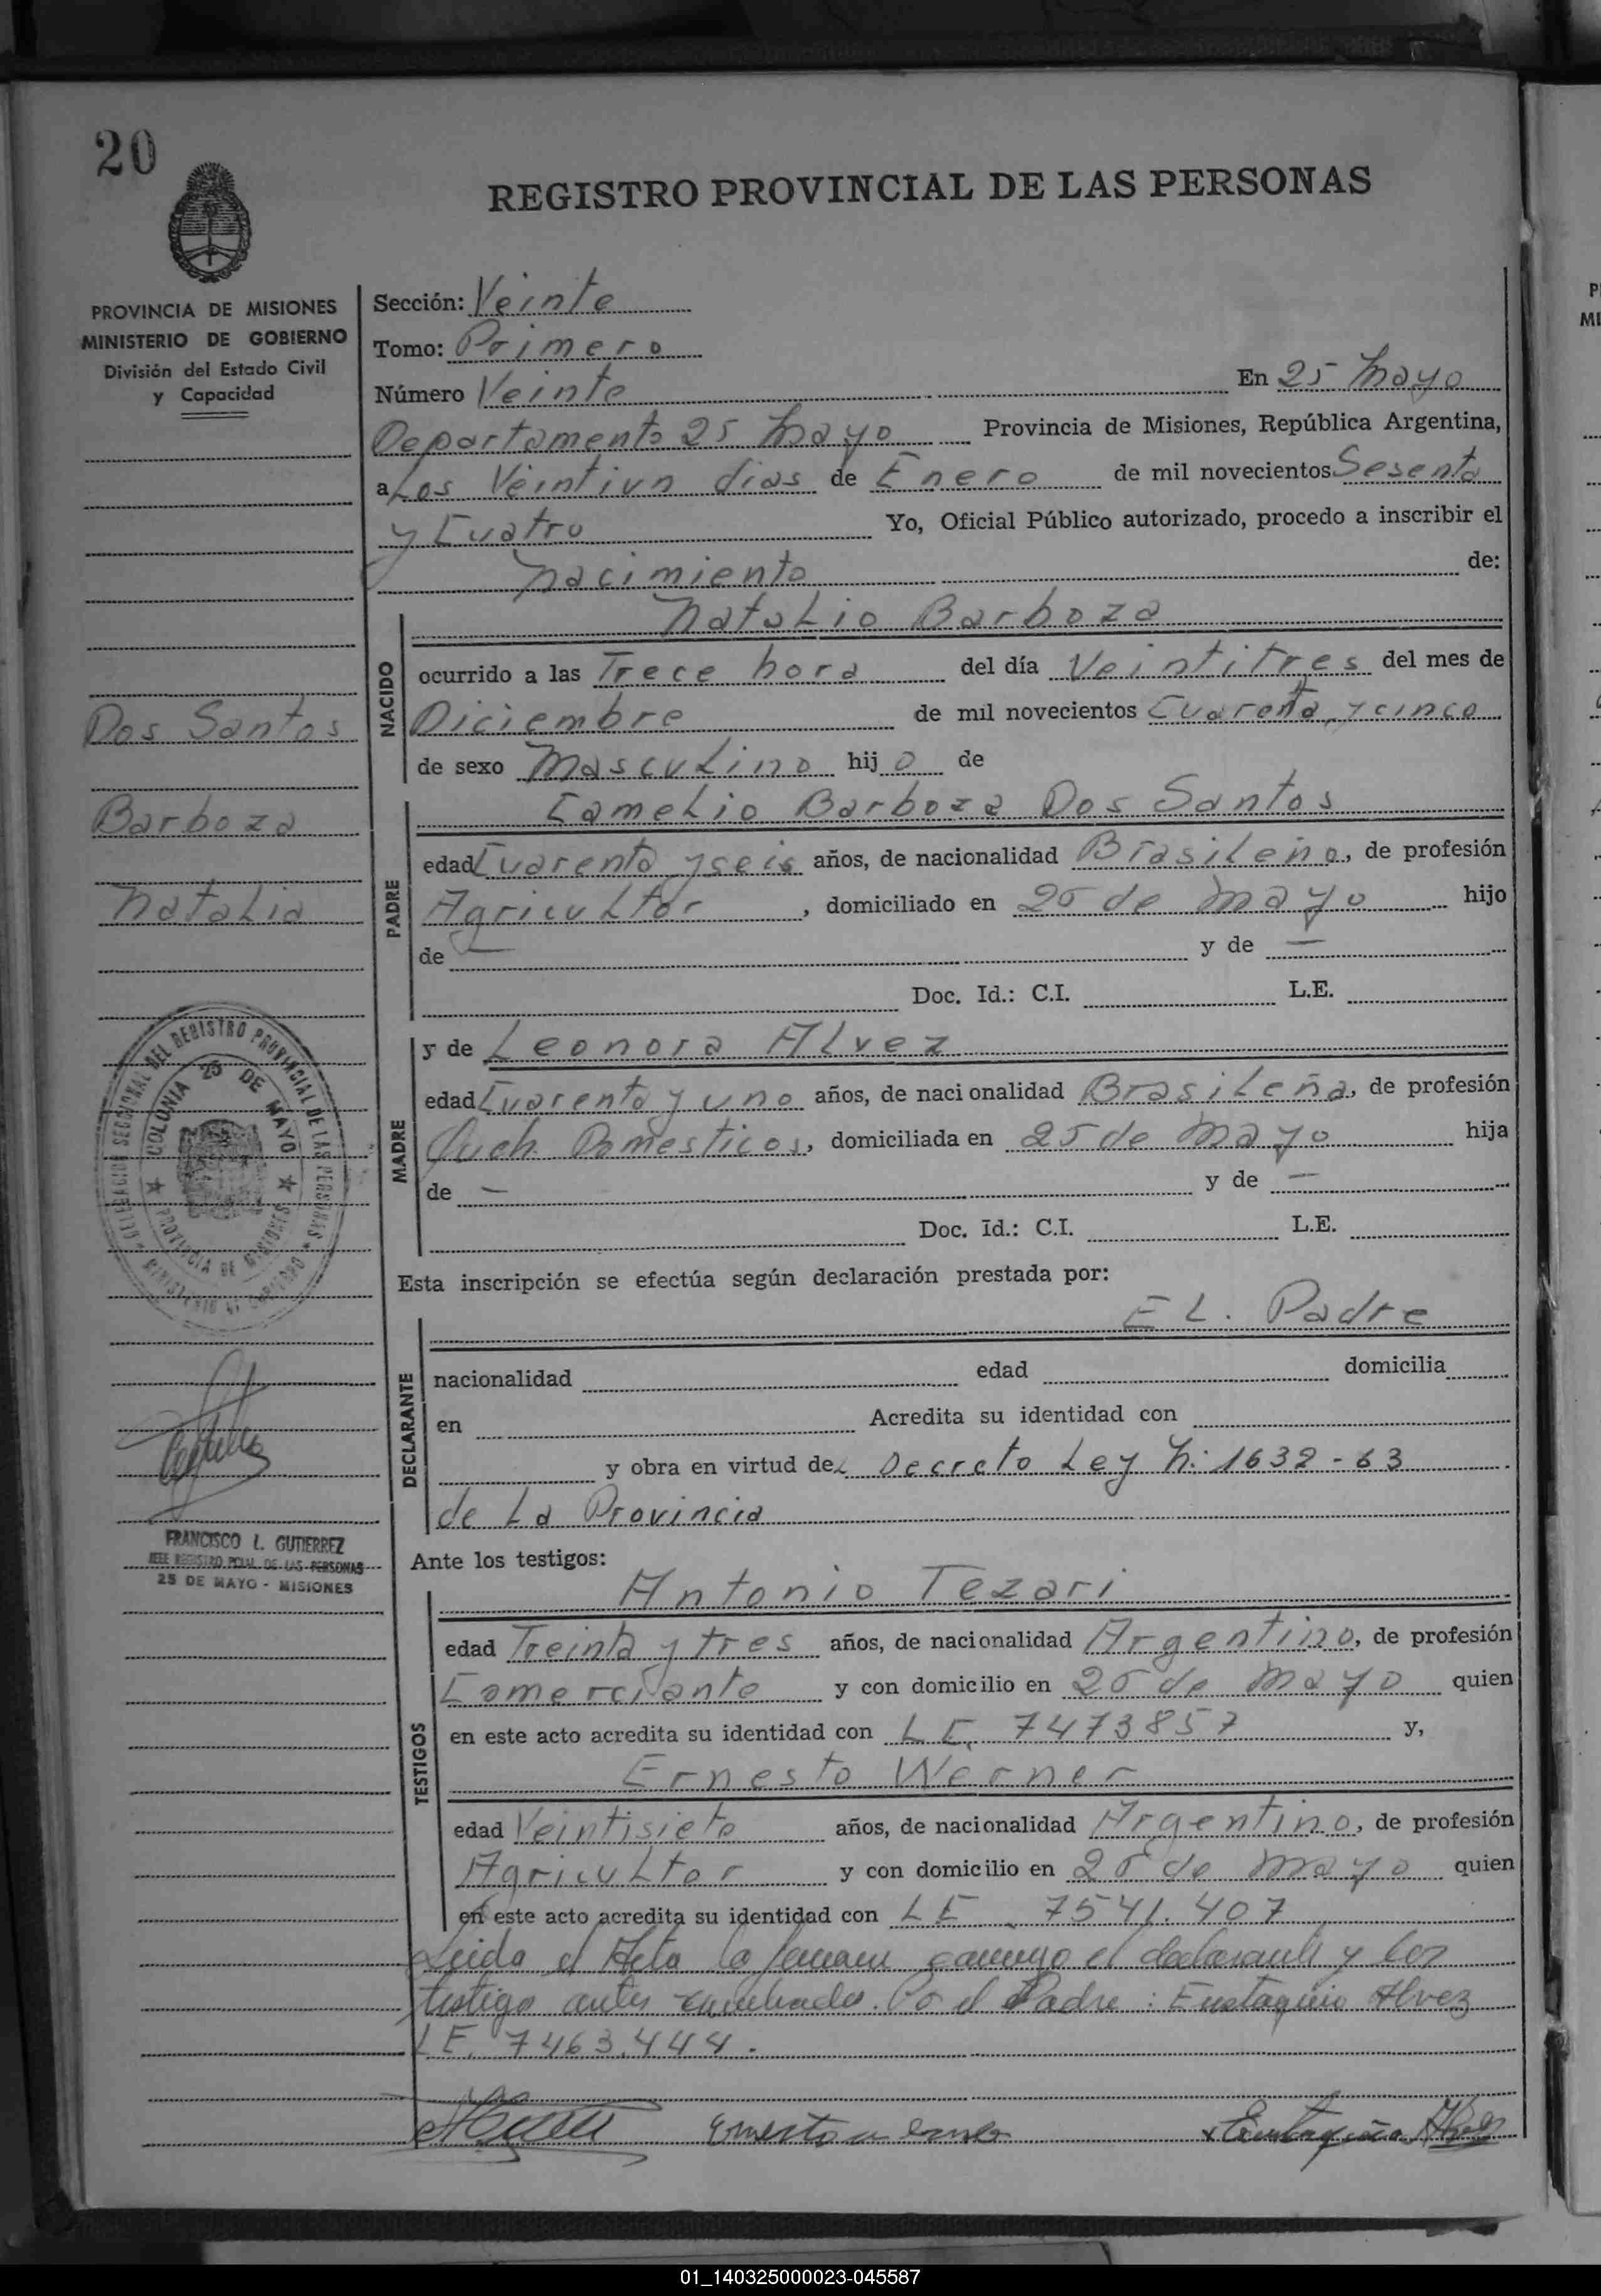 20
REGISTRO PROVINCIAL DE LAS PERSONAS
PROVINCIA DE MISIONES
MINISTERIO DE GOBIERNO
División del Estado Civil
y Capacidad
Sección: Veinte
Tomo: Primero
Número Veinte En 25 Mayo
Departamento 25 Mayo Provincia de Misiones, República Argentina,
a Los Veintiun dias de Enero de mil novecientos Sesenta
y Cuatro Yo, Oficial Público autorizado, procedo a inscribir el
Nacimiento de:
NACIDO
Natalio Barboza
ocurrido a las Trece hora del día Veintitres del mes de
Diciembre de mil novecientos Cuarenta y cinco
de sexo Masculino hijo de
Dos Santos
Barboza
Natalia
PADRE
Camelio Barboza Dos Santos
edad Cuarenta y seis años, de nacionalidad Brasileño, de profesión
Agricultor, domiciliado en 25 de Mayo hijo
de — y de —
Doc. Id.: C.I. L.E.
MADRE
y de Leonora Alvez
edad Cuarenta y uno años, de nacionalidad Brasileña, de profesión
Queh. Domesticos, domiciliada en 25 de Mayo hija
de — y de —
Doc. Id.: C.I. L.E.
DELEGACION SECCIONAL DEL REGISTRO PROVINCIAL DE LAS PERSONAS
COLONIA 25 DE MAYO
PROVINCIA DE MISIONES
MINISTERIO DE GOBIERNO
Esta inscripción se efectúa según declaración prestada por:
DECLARANTE
EL. Padre
nacionalidad edad domicilia
en Acredita su identidad con
y obra en virtud del Decreto Ley N: 1632-63
de La Provincia
FRANCISCO L. GUTIERREZ
JEFE REGISTRO PCIAL. DE LAS PERSONAS
25 DE MAYO - MISIONES
Ante los testigos:
TESTIGOS
Antonio Tezari
edad Treinta y tres años, de nacionalidad Argentino, de profesión
Comerciante y con domicilio en 25 de Mayo quien
en este acto acredita su identidad con LE. 7473857 y,
Ernesto Werner
edad Veintisiete años, de nacionalidad Argentino, de profesión
Agricultor y con domicilio en 25 de Mayo quien
en este acto acredita su identidad con LE 7541.407
Leida el Acta la firman conmigo el declarante y los
testigo antes. Po el Padre: Eustaquio Alvez
LE. 7463.444.
Ernesto Werner Eustaquio Alvez
01_140325000023-045587